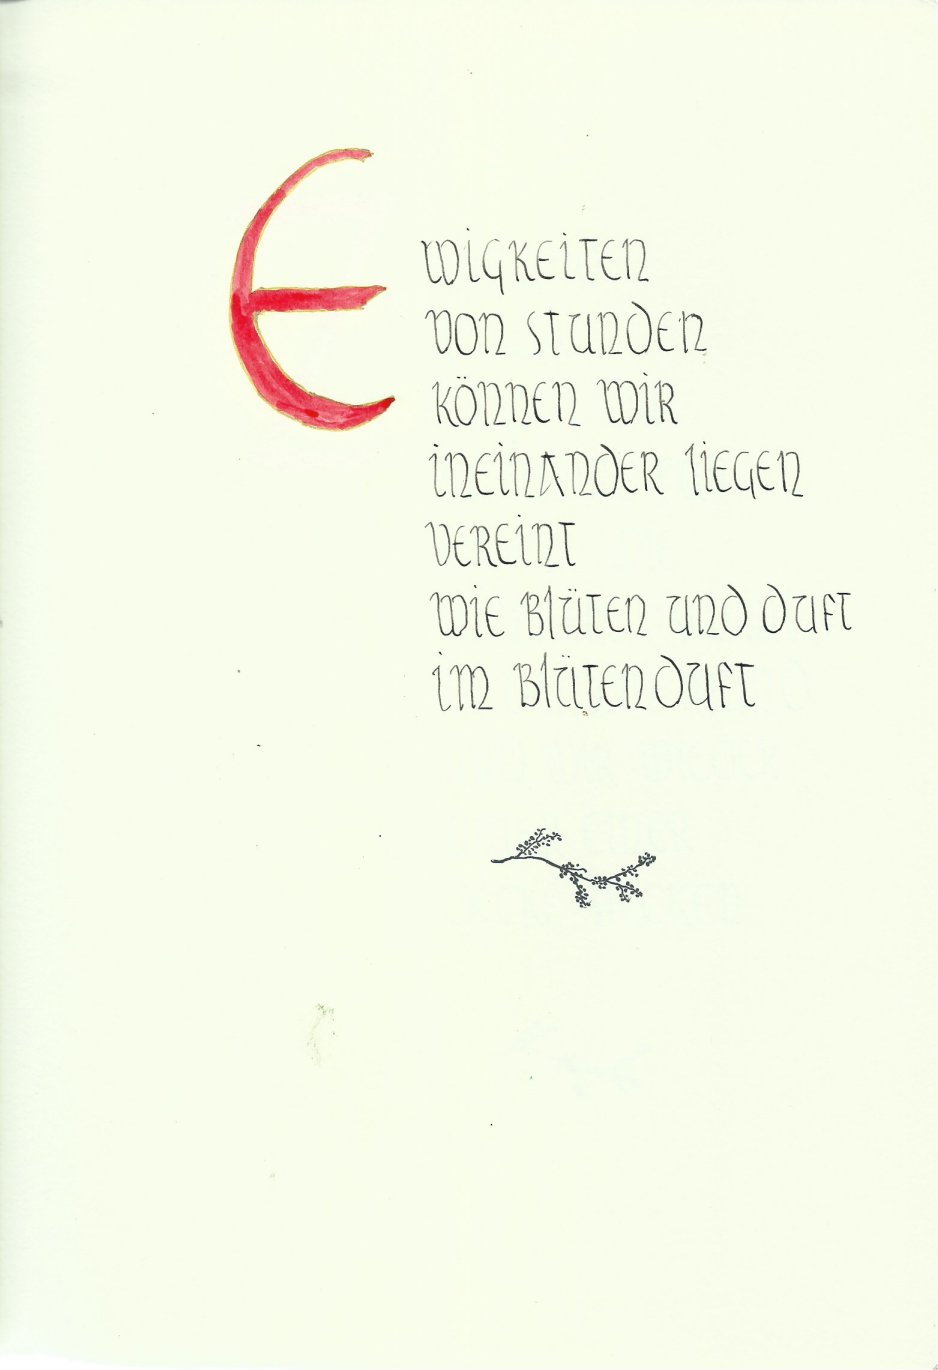 Ewigkeiten
von Stunden
können wir
ineinander liegen
vereint
wie Blüten und Duft
im Blütenduft